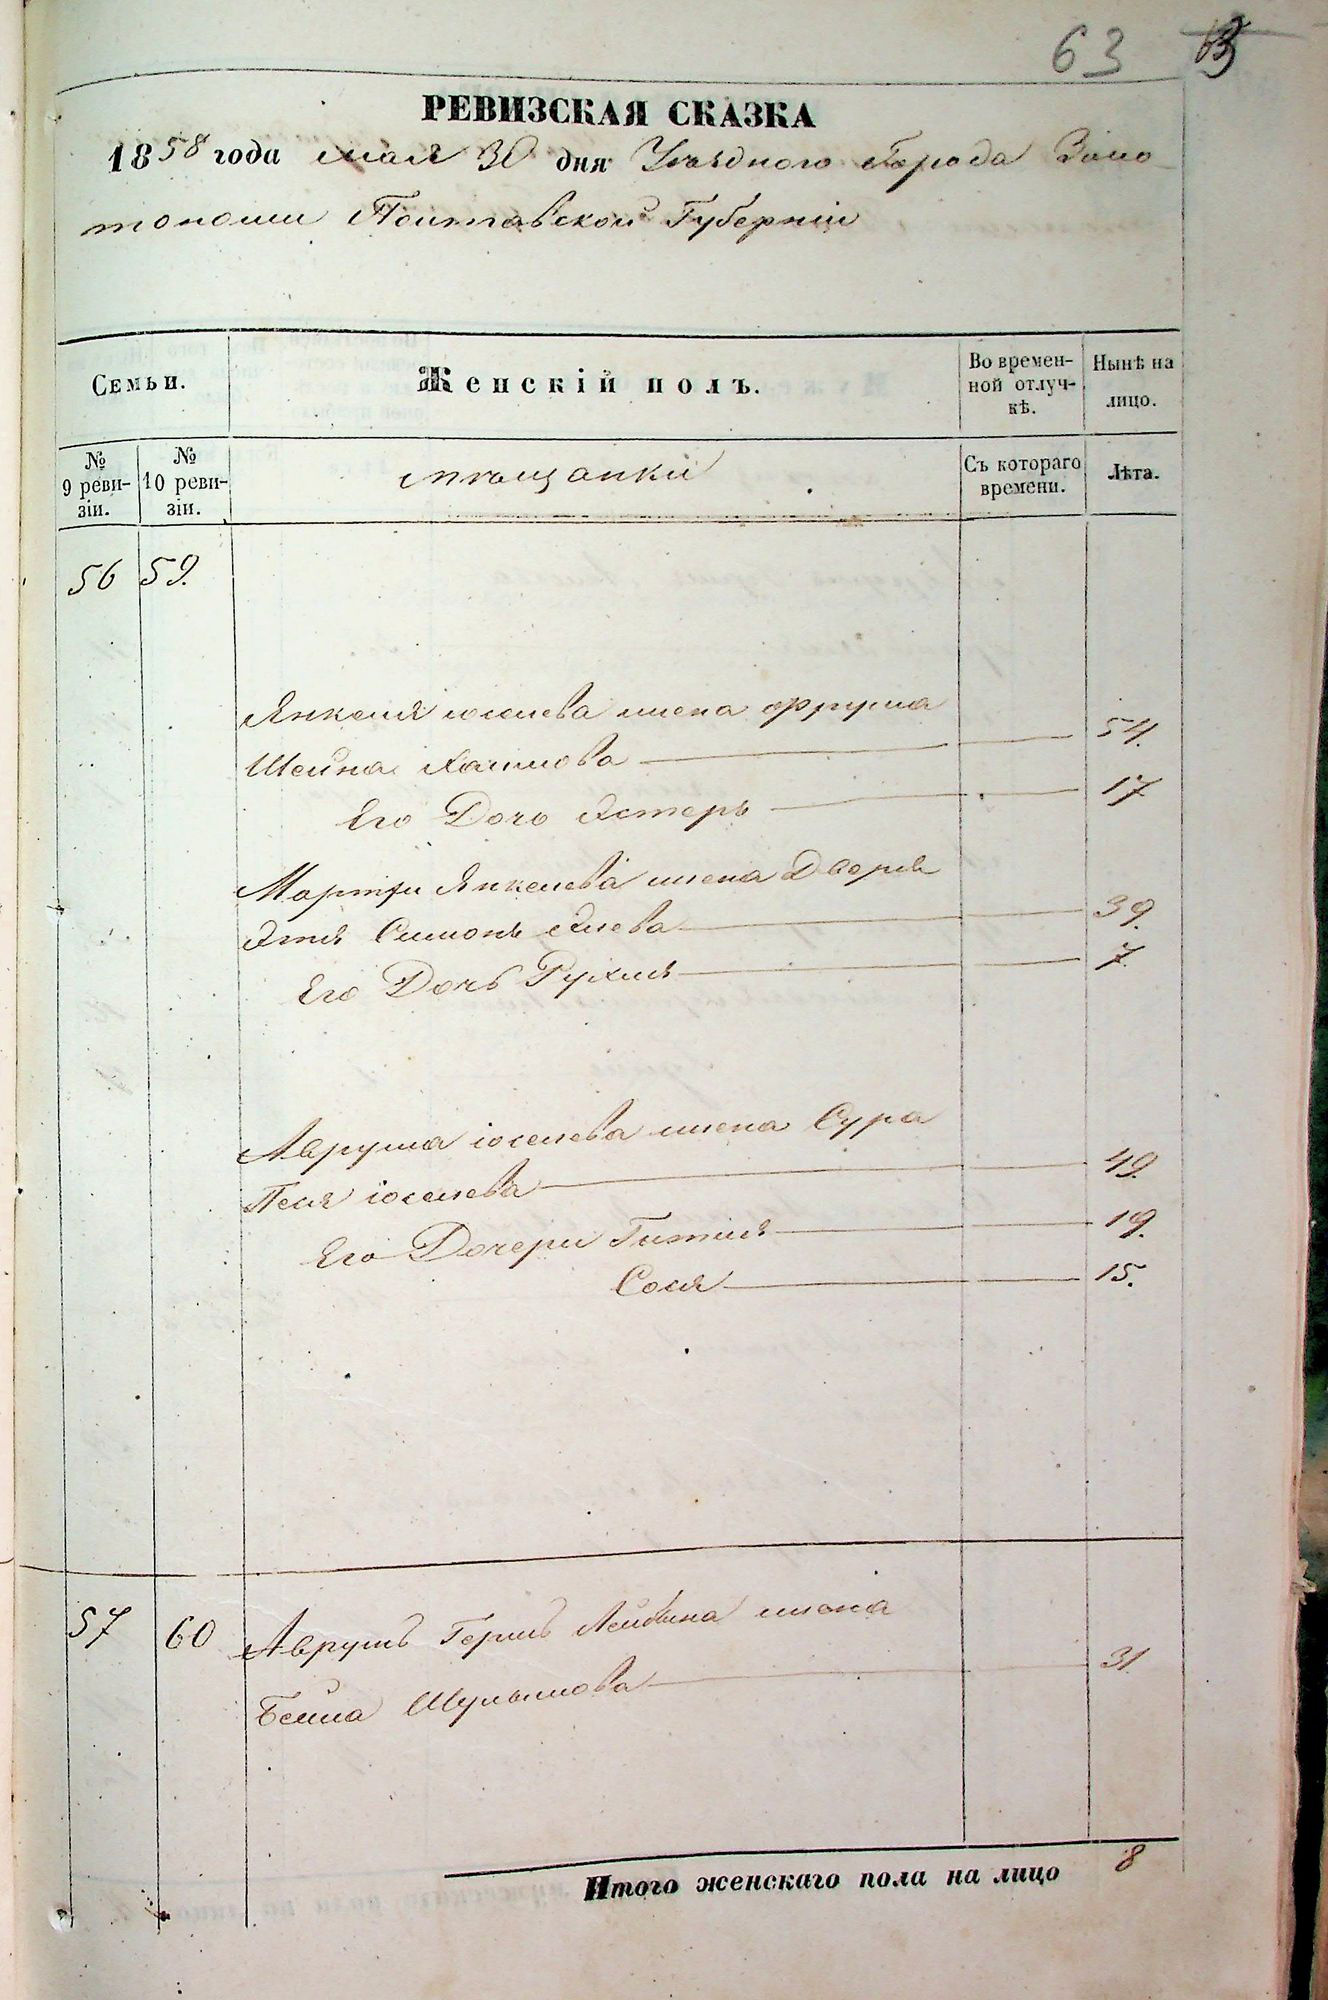 63 63
РЕВИЗСКАЯ СКАЗКА
1858 года мая 30 дня Уѣзднаго Города Золо
тоноши Полтавской Губерніи
Семьи.
Женскій полъ.
Во времен-
ной отлуч-
кѣ.
Нынѣ на
лицо.
№
9 реви-
зіи.
№
10 реви-
зіи.
мѣщанки
Съ котораго
времени.
Лѣта.
56 59.
Янкеля іоселева жена Фрума
Шейна Хаимова 54.
Его Дочь Эстеръ 17
Мортхи Янкелева жена Двейря
Этля Симонъ 39.
Его Дочь Рухля 7.
Аврума іоселева жена Сура
Песя іоселева 49.
Его Дочери Гитля 19.
Сося 15.
57 60 Аврумъ Герша Лейбина жена
Бейла Шулимова 31.
Итого женскаго пола на лицо 8